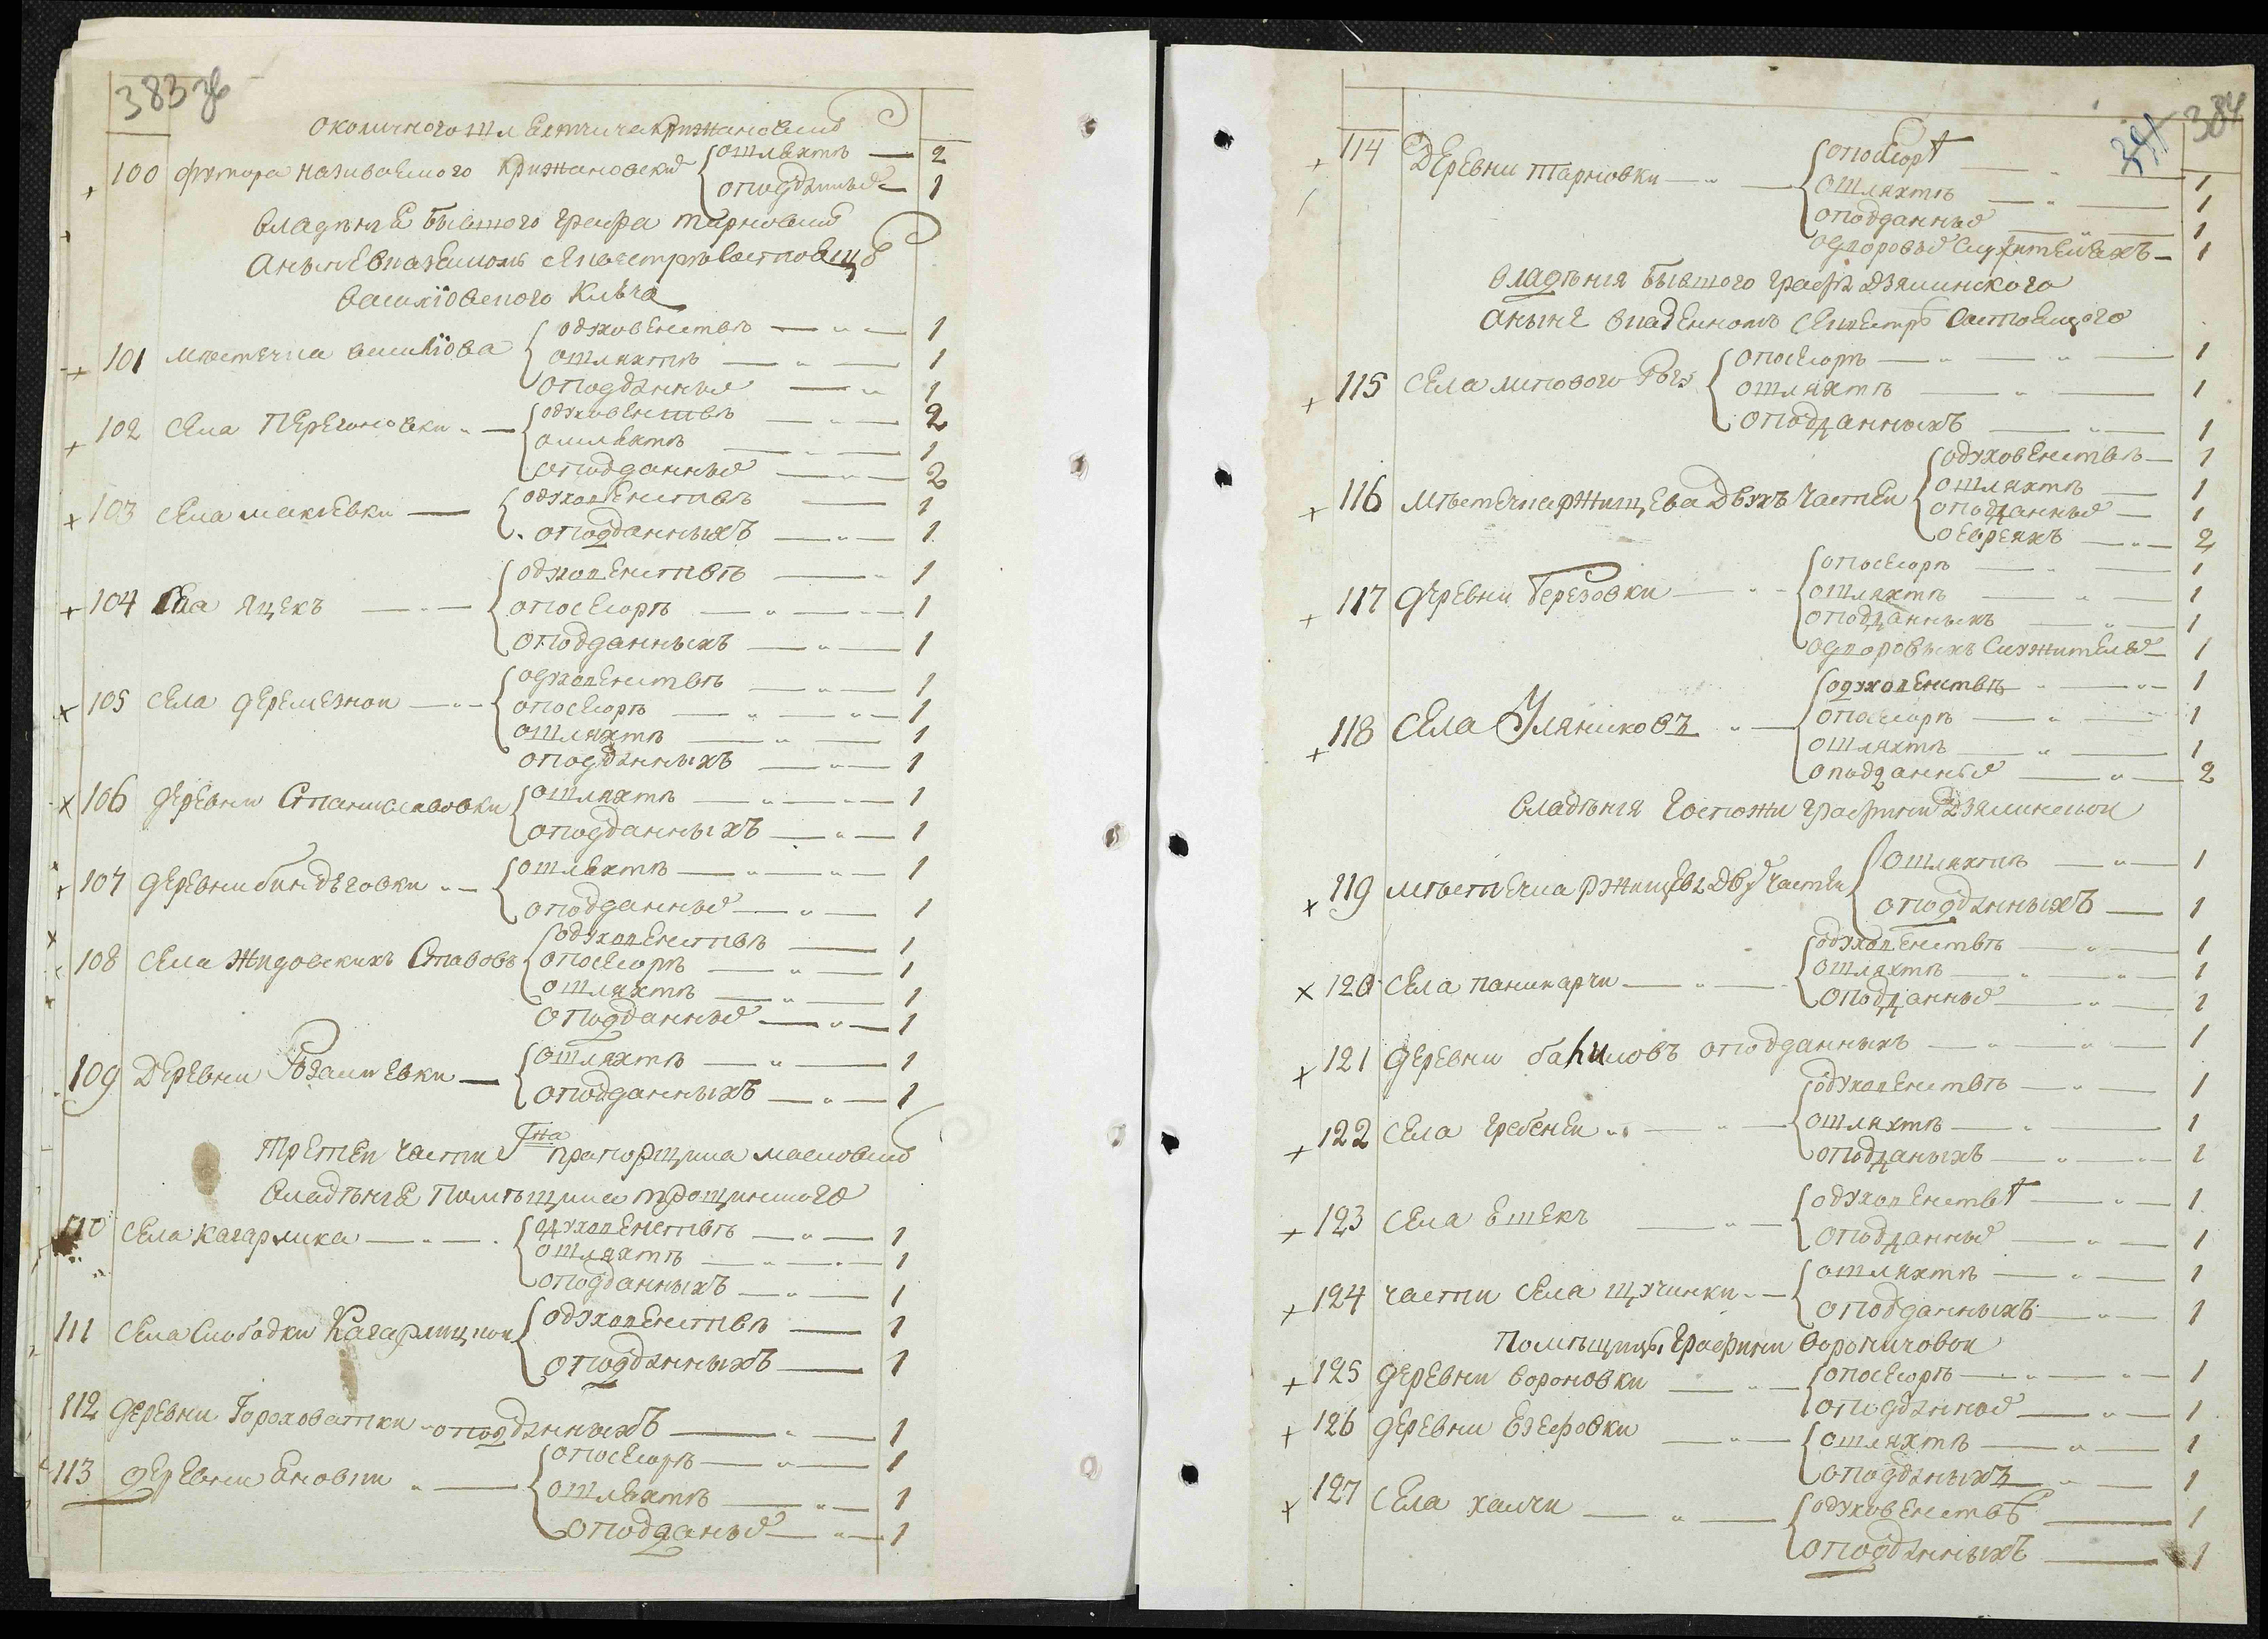 383 зв
околичного шляхтича крижановскаго
100 футора називаемого крижановски о шляхтѣ — 2
о подданные — 1
владѣния бывшого графа тарновскаго
а нынѣ в казенномъ секвестрѣ состоящаго
василковского ключа
101 мѣстечка василкова о духовенствѣ — 1
о шляхтѣ — 1
о подданные — 1
102 села переселовки о духовенствѣ — 2
о шляхтѣ — 1
о подданные — 2
103 села макѣевки о духовенствѣ — 1
о подданныхъ — 1
104 села яцекъ о духовенствѣ — 1
о посесорѣ — 1
о подданныхъ — 1
105 села деремезнои о духовенствѣ — 1
о посесорѣ — 1
о шляхтѣ — 1
о подданныхъ — 1
106 деревни Станиславовки о шляхтѣ — 1
о подданныхъ — 1
107 деревни биндюговки о шляхтѣ — 1
о подданные — 1
108 села жидовскихъ Ставовъ о духовенствѣ — 1
о посесорѣ — 1
о шляхтѣ — 1
о подданные — 1
109 деревни Розалиевки о шляхтѣ — 1
о подданныхъ — 1
третеи части Гна прапорщика масловскаго
владѣния помѣщика трощинского
110 села кагарлика о духовенствѣ — 1
о шляхтѣ — 1
о подданныхъ — 1
111 села Слободки Кагарлицкои о духовенствѣ — 1
о подданныхъ — 1
112 деревни Гороховатки о подданныхъ — 1
113 деревни еновки о посесорѣ — 1
о шляхтѣ — 1
о подданые — 1
391 384
114 деревни тарновки о посесорѣ — 1
о шляхтѣ — 1
о подданные — 1
о дворовые служителяхъ — 1
владѣния бывшого графа дзялинского
а нынѣ в казенномъ секвестрѣ состоящого
115 села липового Рогу о посесорѣ — 1
о шляхтѣ — 1
о подданныхъ — 1
116 мѣстечка ржищева двухъ частеи о духовенствѣ — 1
о шляхтѣ — 1
о подданные — 1
о евреяхъ — 2
117 деревни березовки о посесорѣ — 1
о шляхтѣ — 1
о подданныхъ — 1
о дворовыхъ служителяхъ — 1
118 села Уляниковъ о духовенствѣ — 1
о посесорѣ — 1
о шляхтѣ — 1
о подданные — 2
владѣния госпожи графини дзялинскои
119 мѣстечка ржищева двух частеи о шляхтѣ — 1
о подданныхъ — 1
120 села паникарчи о духовенствѣ — 1
о шляхтѣ — 1
о подданные — 1
121 деревни бакумовъ о подданныхъ — 1
122 села гребенеи о духовенствѣ — 1
о шляхтѣ — 1
о подданыхъ — 1
123 села о духовенствѣ — 1
о подданные — 1
124 части села щучинки о шляхтѣ — 1
о подданныхъ — 1
помѣщицы графини вороничовои
125 деревни вороновки о посесорѣ — 1
о подданные — 1
126 деревни езефовки о шляхтѣ — 1
о подданыхъ — 1
127 села халчи о духовенствѣ — 1
о подданныхъ — 1